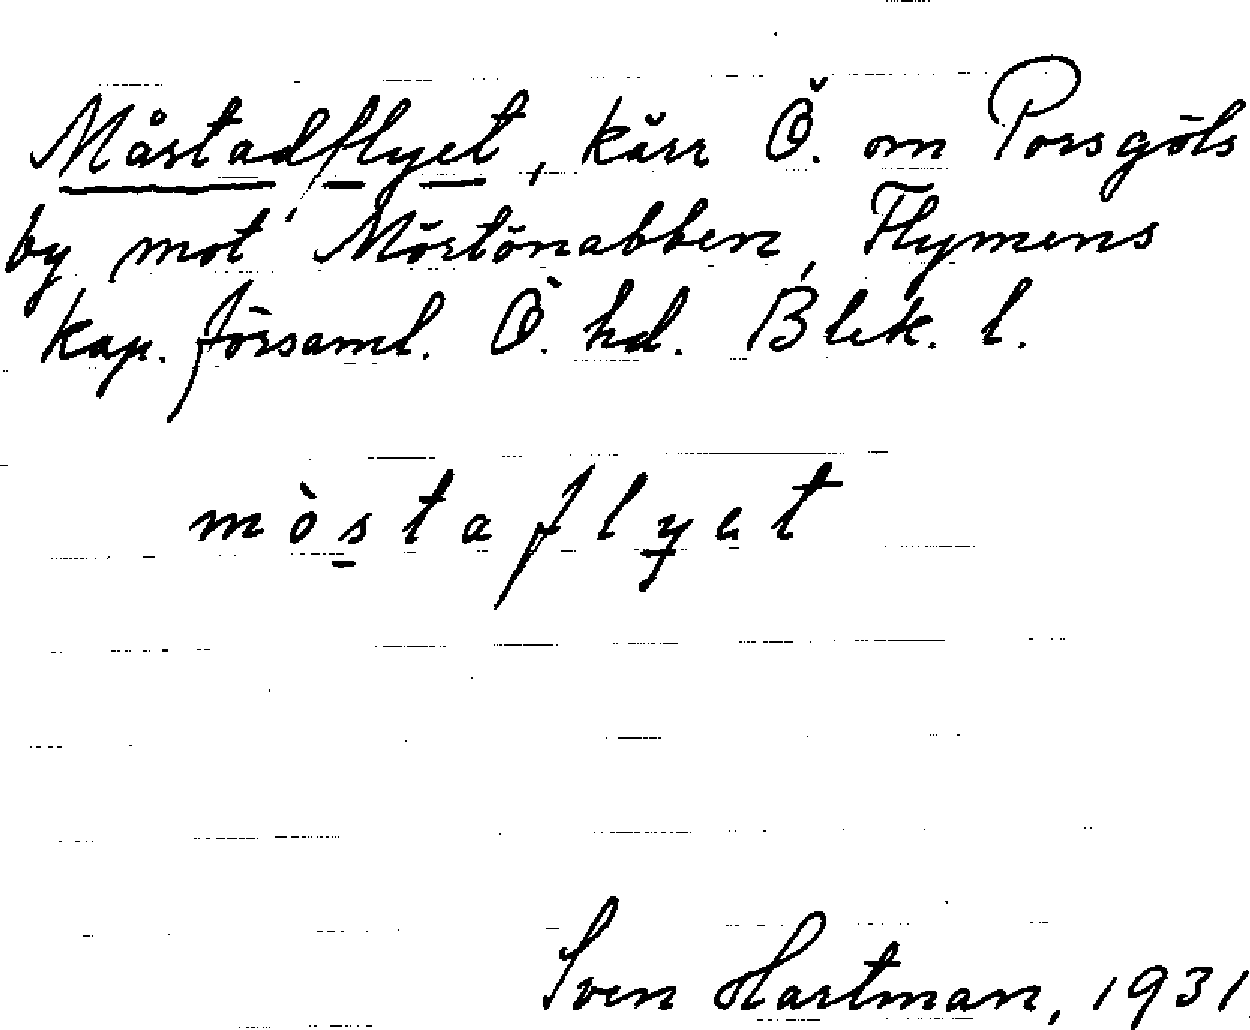 Mårstadflyet, kärr Ö. om Porsgöls
by mot Mörtönabben, Flymens
kap. församl. Ö. hd. Blek. l.
mòstaflyet
Sven Hartman, 1931